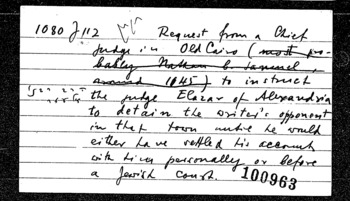 1080 J 112 Request from a Chief
judge in Old Cairo (most pro-
bably Nathan b. Samuel,
around 1145) to instruct
the judge Elazar of Alexandria
to detain the writer's opponent
in that town until he would
either have settled his account
with him personally or before
a Jewish court. 100963